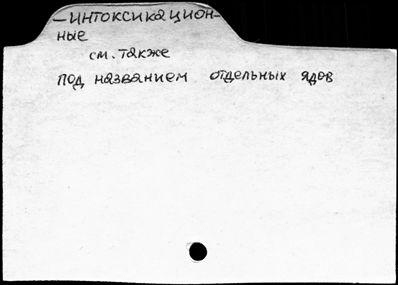 – ИНТОКСИКАЦИОН-
ные
см. также
под названием отдельных ядов